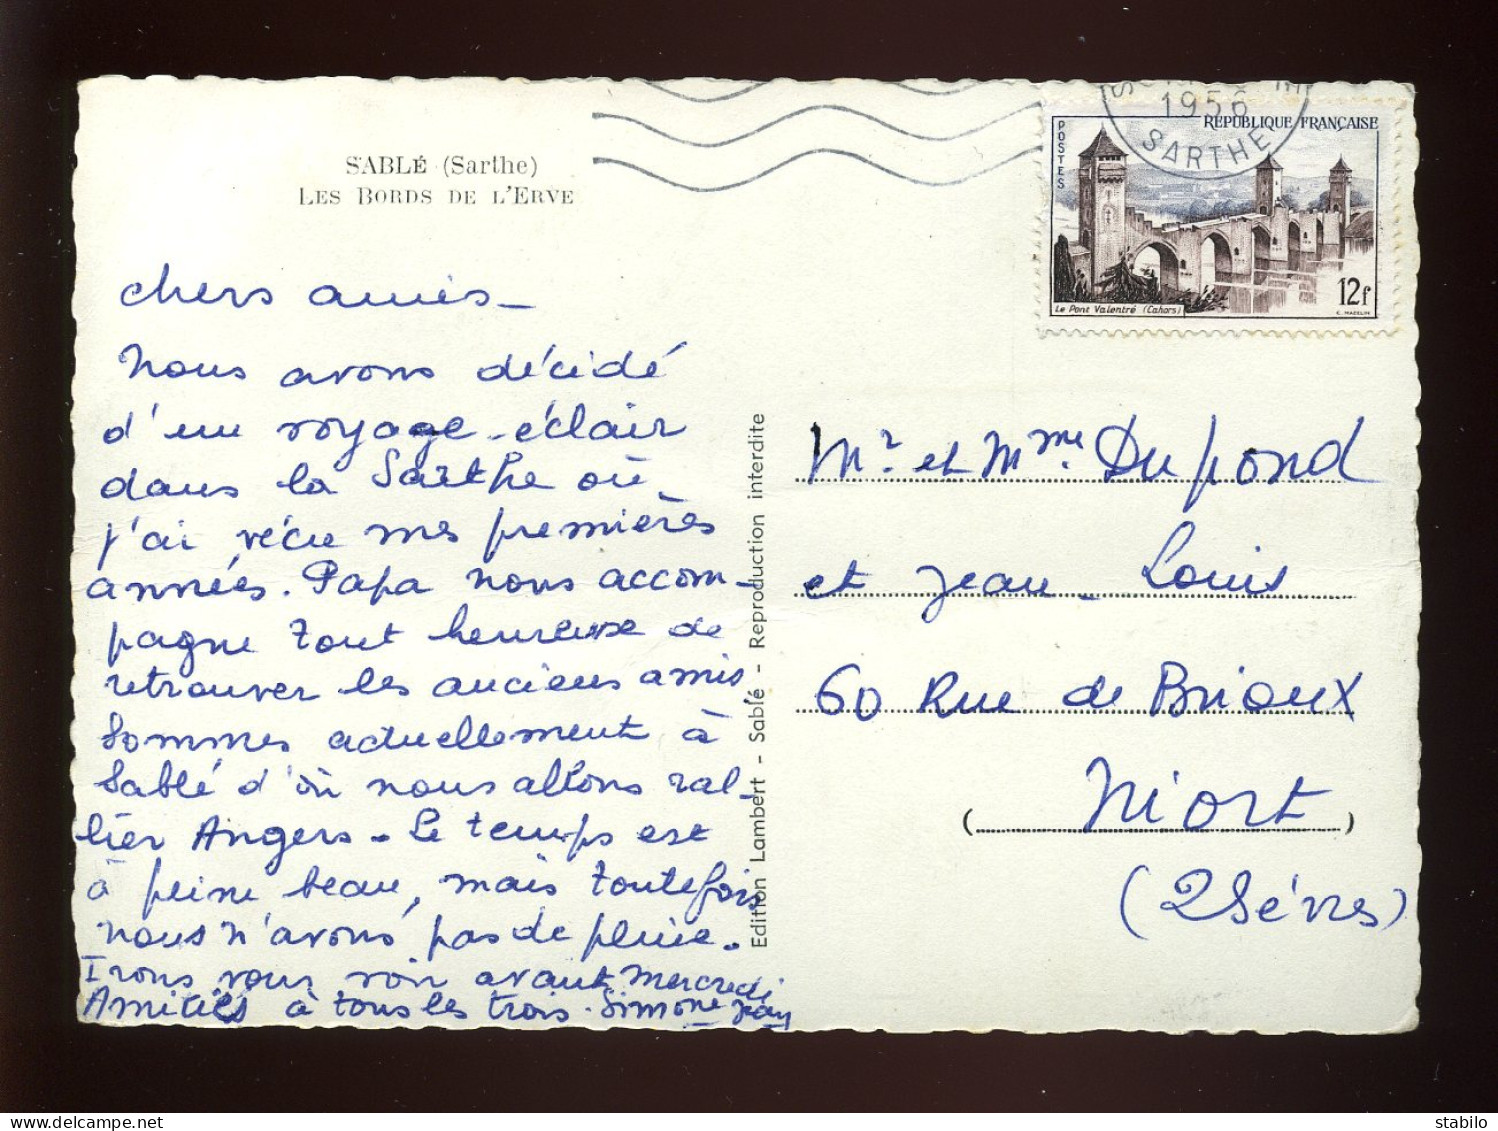 SABLÉ (Sarthe)
LES BORDS DE L'ERVE
1956
SARTHE
POSTES
RÉPUBLIQUE FRANÇAISE
Le Pont Valentré (Cahors)
12f
C. MAZELIN
chers amis_
Nous avons décidé
d'un voyage-éclair
dans la Sarthe où
j'ai vécu mes premières
années. Papa nous accom-
pagne tout heureuse de
retrouver les anciens amis
Sommes actuellement à
Sablé d'où nous allons ral-
lier Angers. Le temps est
à peine beau, mais toutefois
nous n'avons pas de pluie.
Irons vous voir avant Mercredi
Amitiés à tous les trois. Simone Jean
Edition Lambert - Sablé - Reproduction interdite
Mr. et Mme. Dupond
et Jean-Louis
60 Rue de Brioux
( Niort )
(2 Sèvres)
stabilo